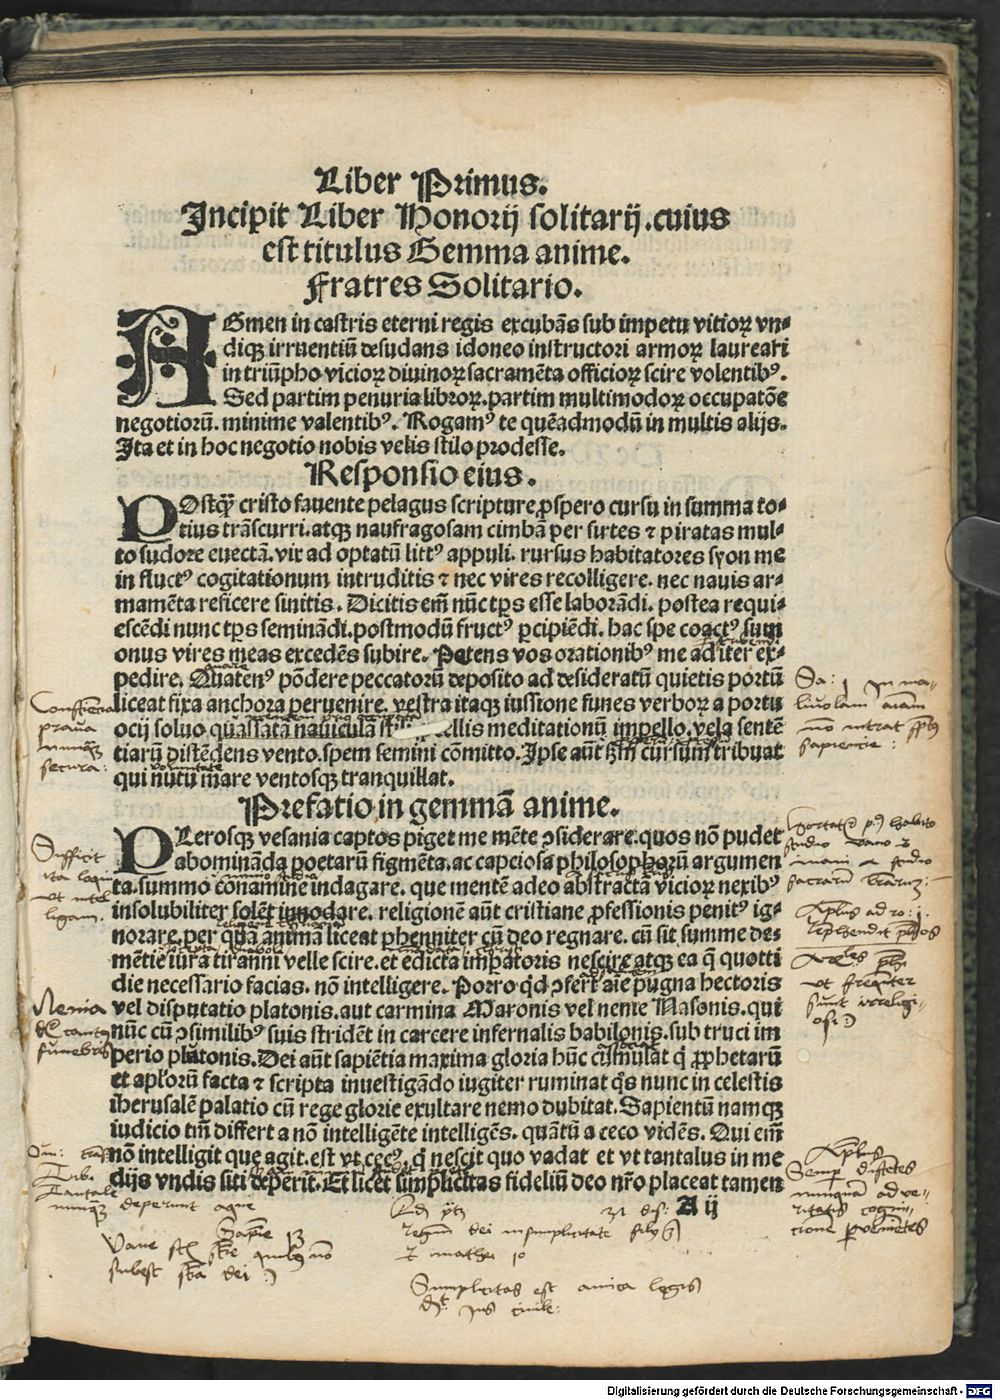 Liber Primus.
Incipit Liber Honorij solitarij.cuius
est titulus Gemma anime.
Fratres Solitario.
AGmen in castris eterni regis excubās sub impetu vitioꝝ vn⸗
diqꝫ irruentiū desudans idoneo instructori armoꝝ laureari
in triūpho vicioꝝ diuinoꝝ sacramēta officioꝝ scire volentibꝰ.
Sed partim penuria libroꝝ.partim multimodoꝝ occupatōe
negotiorū. minime valentibꝰ. Rogamꝰ te quēadmodū in multis alijs.
Ita et in hoc negotio nobis velis stilo prodesse.
Responsio eius.
POstqꝫ̄ cristo fauente pelagus scripture ꝓspero cursu in summa to⸗
tius trāscurri.atqꝫ naufragosam cimbā per sirtes ⁊ piratas mul⸗
to sudore euectā.vix ad optatū littꝰ appuli. rursus habitatores syon me
in fluctꝰ cogitationum intruditis ⁊ nec vires recolligere. nec nauis ar⸗
mamēta reficere sinitis. Dicitis em̄ nūc tp̄s esse laborādi. postea requi⸗
escēdi nunc tp̄s seminādi.postmodū fructꝰ ꝑcipiēdi. hac spe coactꝰ sum
onus vires meas excedēs subire. Petens vos orationibꝰ me ad iter ex⸗
pedire. Quatenꝰ pōdere peccatorū deposito ad desideratū quietis portū
liceat fixa anchora peruenire. vestra itaqꝫ iussione funes verboꝝ a portu
ocij soluo quassatā nauiculā sti ellis meditationū impello. vela sentē
tiarū distēdens vento.spem semini cōmitto. Ipse aūt cursum tribuat
qui nutu mare ventosqꝫ tranquillat.
Prefatio in gemmā anime.
PLerosqꝫ vesania captos piget me mēte ꝯsiderare.quos nō pudet
abomināda poetarū figmēta.ac capciosa philosophorū argumen
ta.summo conamine indagare. que mentē adeo abstractā vicioꝝ nexibꝰ
insolubiliter solēt innodare. religionē aūt cristiane ꝓfessionis penitꝰ ig⸗
norare.per quā animā liceat ꝑhenniter cū deo regnare. cū sit summe de⸗
mētie iura tiranni velle scire.et edicta imꝑatoris nescire atqꝫ ea q̄ quotti
die necessario facias. nō intelligere. Porro qd̓ ꝯfert aīe pugna hectoris
vel disputatio platonis.aut carmina Maronis vel nenie Nasonis. qui
nūc cū ꝯsimilibꝰ suis stridēt in carcere infernalis babilonis.sub truci im
perio plutonis. Dei aūt sapiētia maxima gloria hūc cumulat q̄ ꝓphetarū
et apl̓orū facta ⁊ scripta inuestigādo iugiter ruminat q̄s nunc in celestis
iherusalē palatio cū rege glorie exultare nemo dubitat. Sapientū namqꝫ
iudicio tm̄ differt a nō intelligēte intelligēs. quātū a ceco vidēs. Qui em̄
nō intelligit que agit.est vt cecꝰ. q̄ nescit quo vadat et vt tantalus in me
dijs vndis siti deperit. Et licet simplicitas fidelium deo nr̄o placeat tamen
A ij
praua
secura:
Sufficit
Nenia
cantꝰ
funebris
Sa: 1 In ma-
liuolam aīam
nō intrat
sapiencie:
nunqꝫ deperunt aque
Vane
subest dei
Simplicitas est amica legis
Jus ciuile:
Semꝑ
nunquā ad ve-
ritatis cogni-
cionē
Digitalisierung gefördert durch die Deutsche Forschungsgemeinschaft - DFG